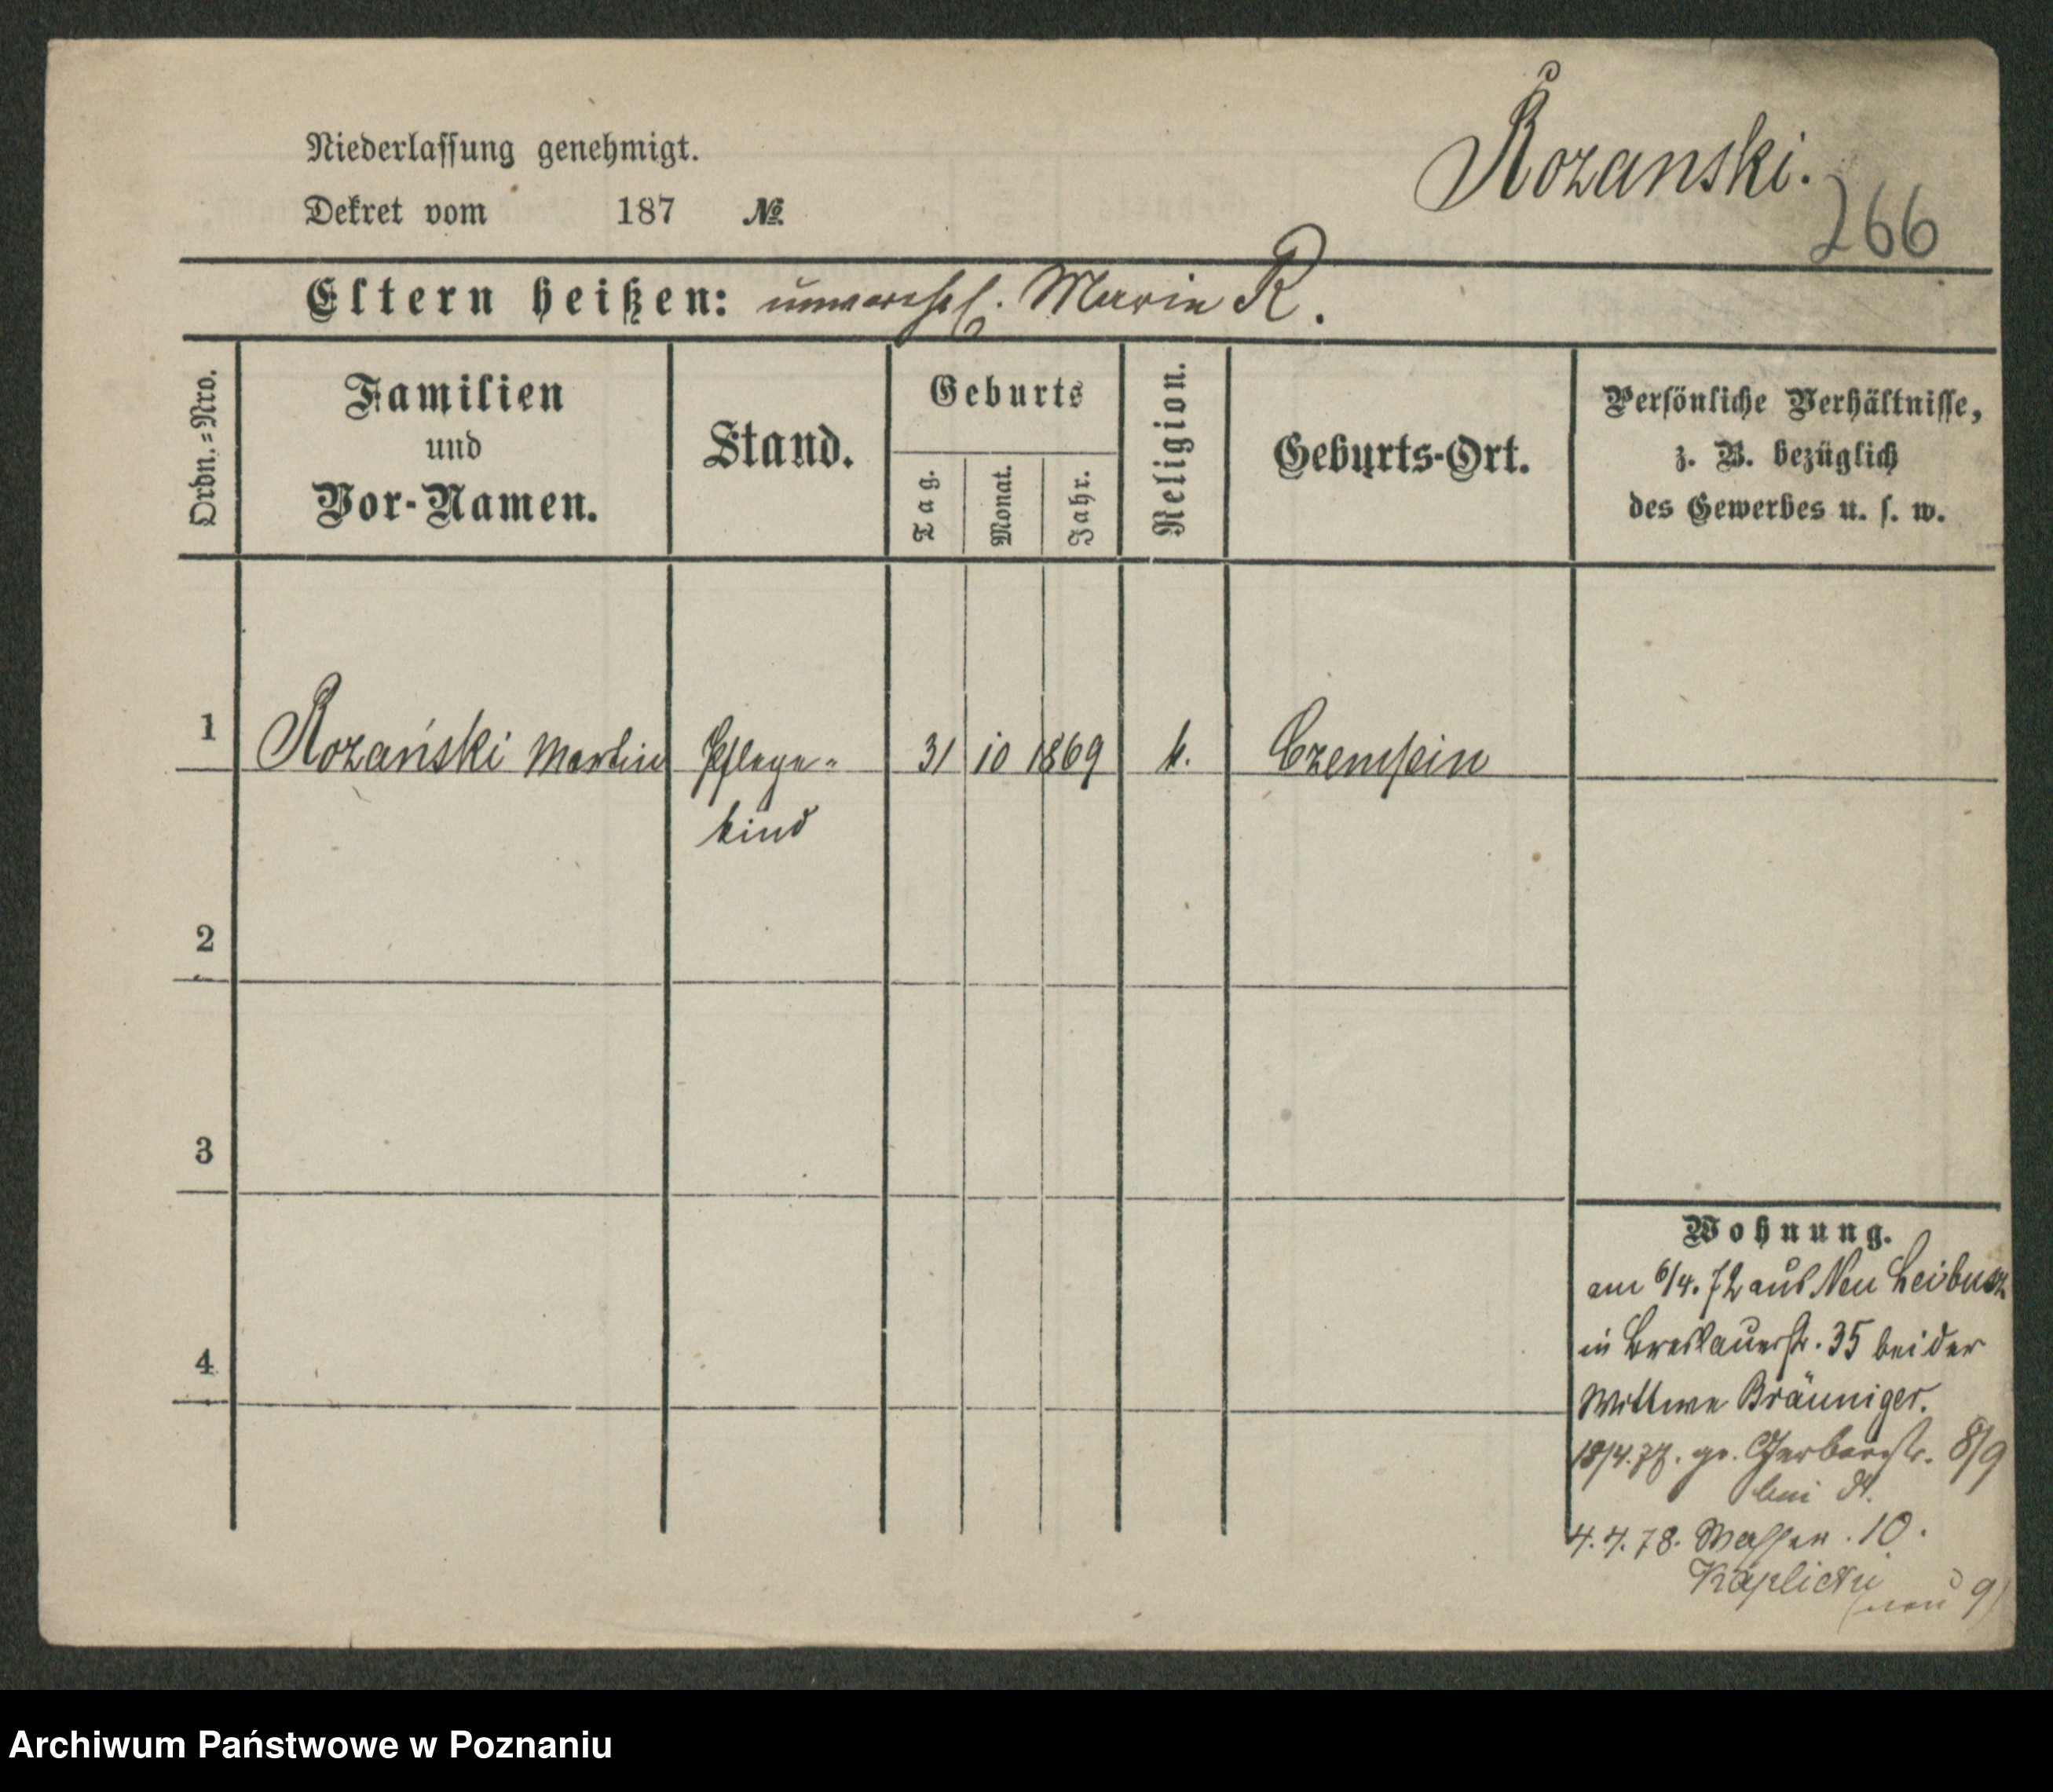 Niederlassung genehmigt.
Dekret vom 187 №
Rozanski.
266
Eltern heißen: unverehel. Marie R.
Ordn.=Nro.
Familien
und
Vor-Namen.
Stand.
Geburts
Tag.
Monat.
Jahr.
Religion.
Geburts-Ort.
Persönliche Verhältnisse,
z. B. bezüglich
des Gewerbes u. s. w.
1 Rozański Martin Pflege= 31 10 1869 k. Czempin
kind
2
3
4
Wohnung.
am 6/4. 72 aus Neu
in Breslauerstr. 35 bei der
Wittwe Bräuniger.
18/4. 77. gr. Gerberstr. 8/9
bei
4. 4. 78. Wasser. 10.
Kaplicki
9)
Archiwum Państwowe w Poznaniu